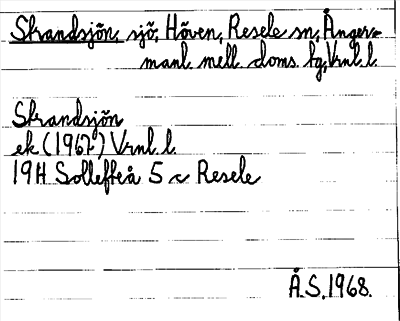 Strandsjön, sjö, Höven, Resele sn, Ånger-
manl. mell. doms. tg, Vrnl. l.
Strandsjön
ek (1967) Vrnl. l.
19H Sollefteå 5 c Resele
Å.S. 1968.